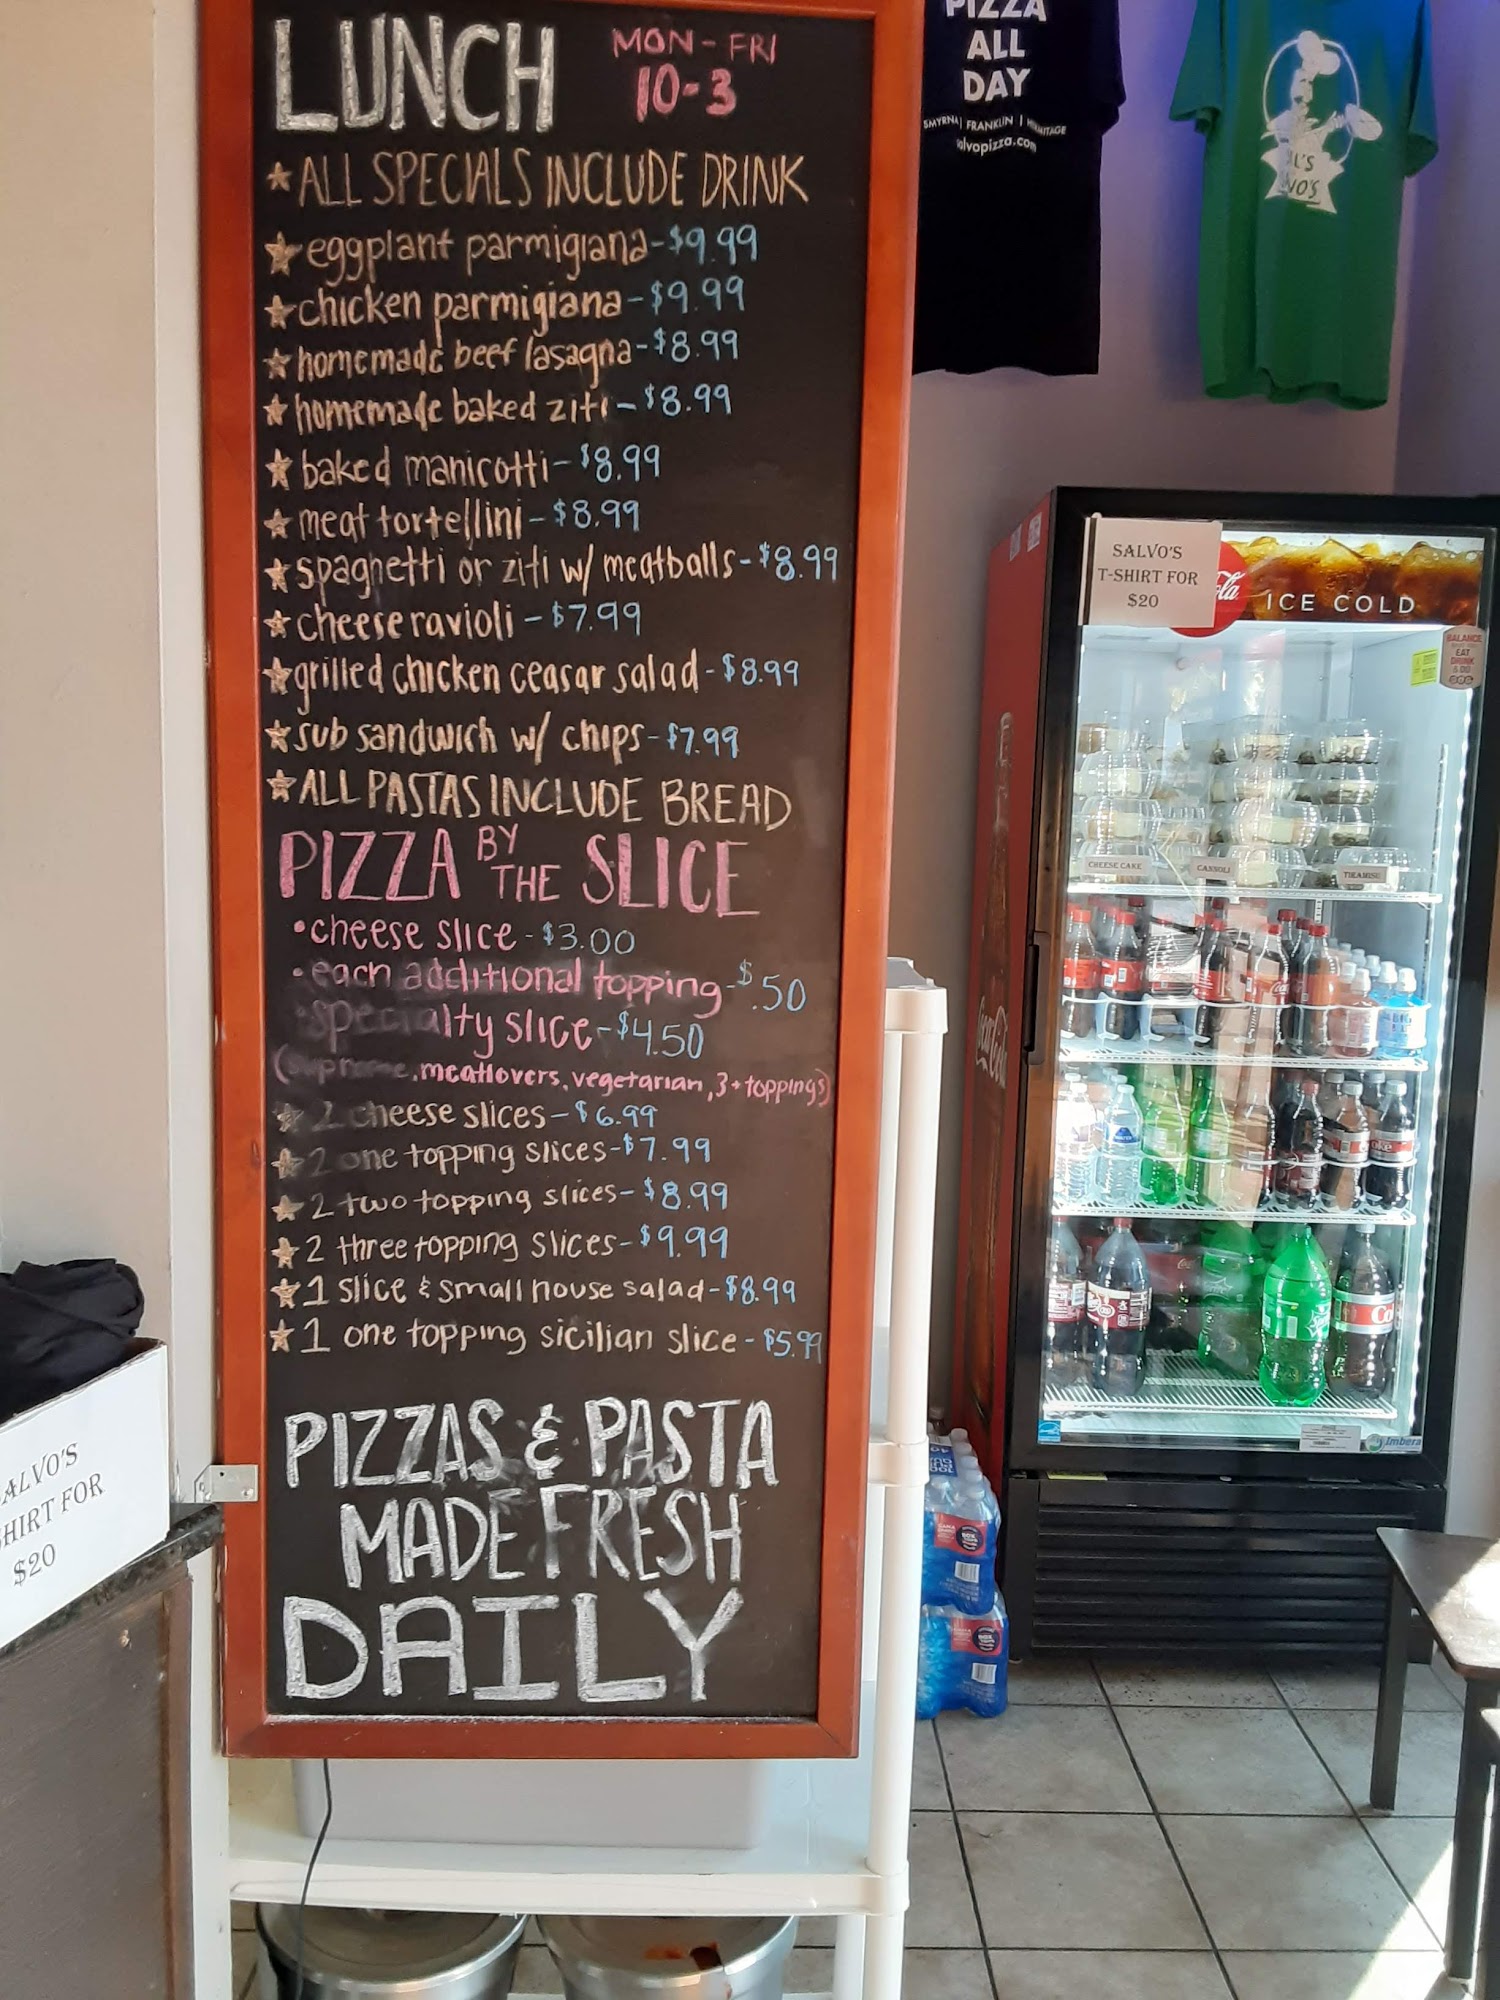 LUNCH MON-FRI
10-3
★ ALL SPECIALS INCLUDE DRINK
★ eggplant parmigiana-$9.99
★ chicken parmigiana-$9.99
★ homemade beef lasagna-$8.99
★ homemade baked ziti-$8.99
★ baked manicotti-$8.99
★ meat tortellini-$8.99
★ spaghetti or ziti w/ meatballs-$8.99
★ cheese ravioli-$7.99
★ grilled chicken ceasar salad-$8.99
★ sub sandwich w/ chips-$7.99
★ ALL PASTAS INCLUDE BREAD
PIZZA BY THE SLICE
• cheese slice-$3.00
• each additional topping-$.50
• specialty slice-$4.50
meatlovers, vegetarian, 3+ toppings)
★ 2 cheese slices-$6.99
★ 2 one topping slices-$7.99
★ 2 two topping slices-$8.99
★ 2 three topping slices-$9.99
★ 1 slice & small house salad-$8.99
★ 1 one topping sicilian slice-$5.99
PIZZAS & PASTA
MADE FRESH
DAILY
PIZZA
ALL
DAY
SMYRNA | FRANKLIN | HERMITAGE
salvopizza.com
AL'S
VO'S
SALVO'S
T-SHIRT FOR
$20
ICE COLD
BALANCE
EAT
DRINK
& DO
CHEESE CAKE
CANNOLI
TIRAMISU
Coca-Cola
Imbera
SALVO'S
SHIRT FOR
$20